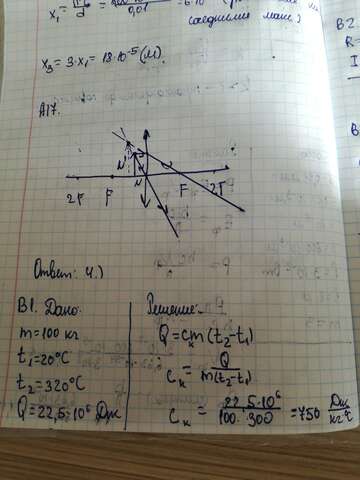 x₁ =
0,01
соседними макс)
x₃ = 3·x₁ = 18·10⁻⁵ (м).
A17.
2F F F 2F
Ответ: 4.)
B1. Дано:
m = 100 кг
t₁ = 20°C
t₂ = 320°C
Q = 22,5·10⁶ Дж
Решение:
Q = cm(t₂-t₁)
cₖ = Q / m(t₂-t₁)
cₖ = 22,5·10⁶ / 100·300 = 750 Дж / кг·°C
B2.
R =
I